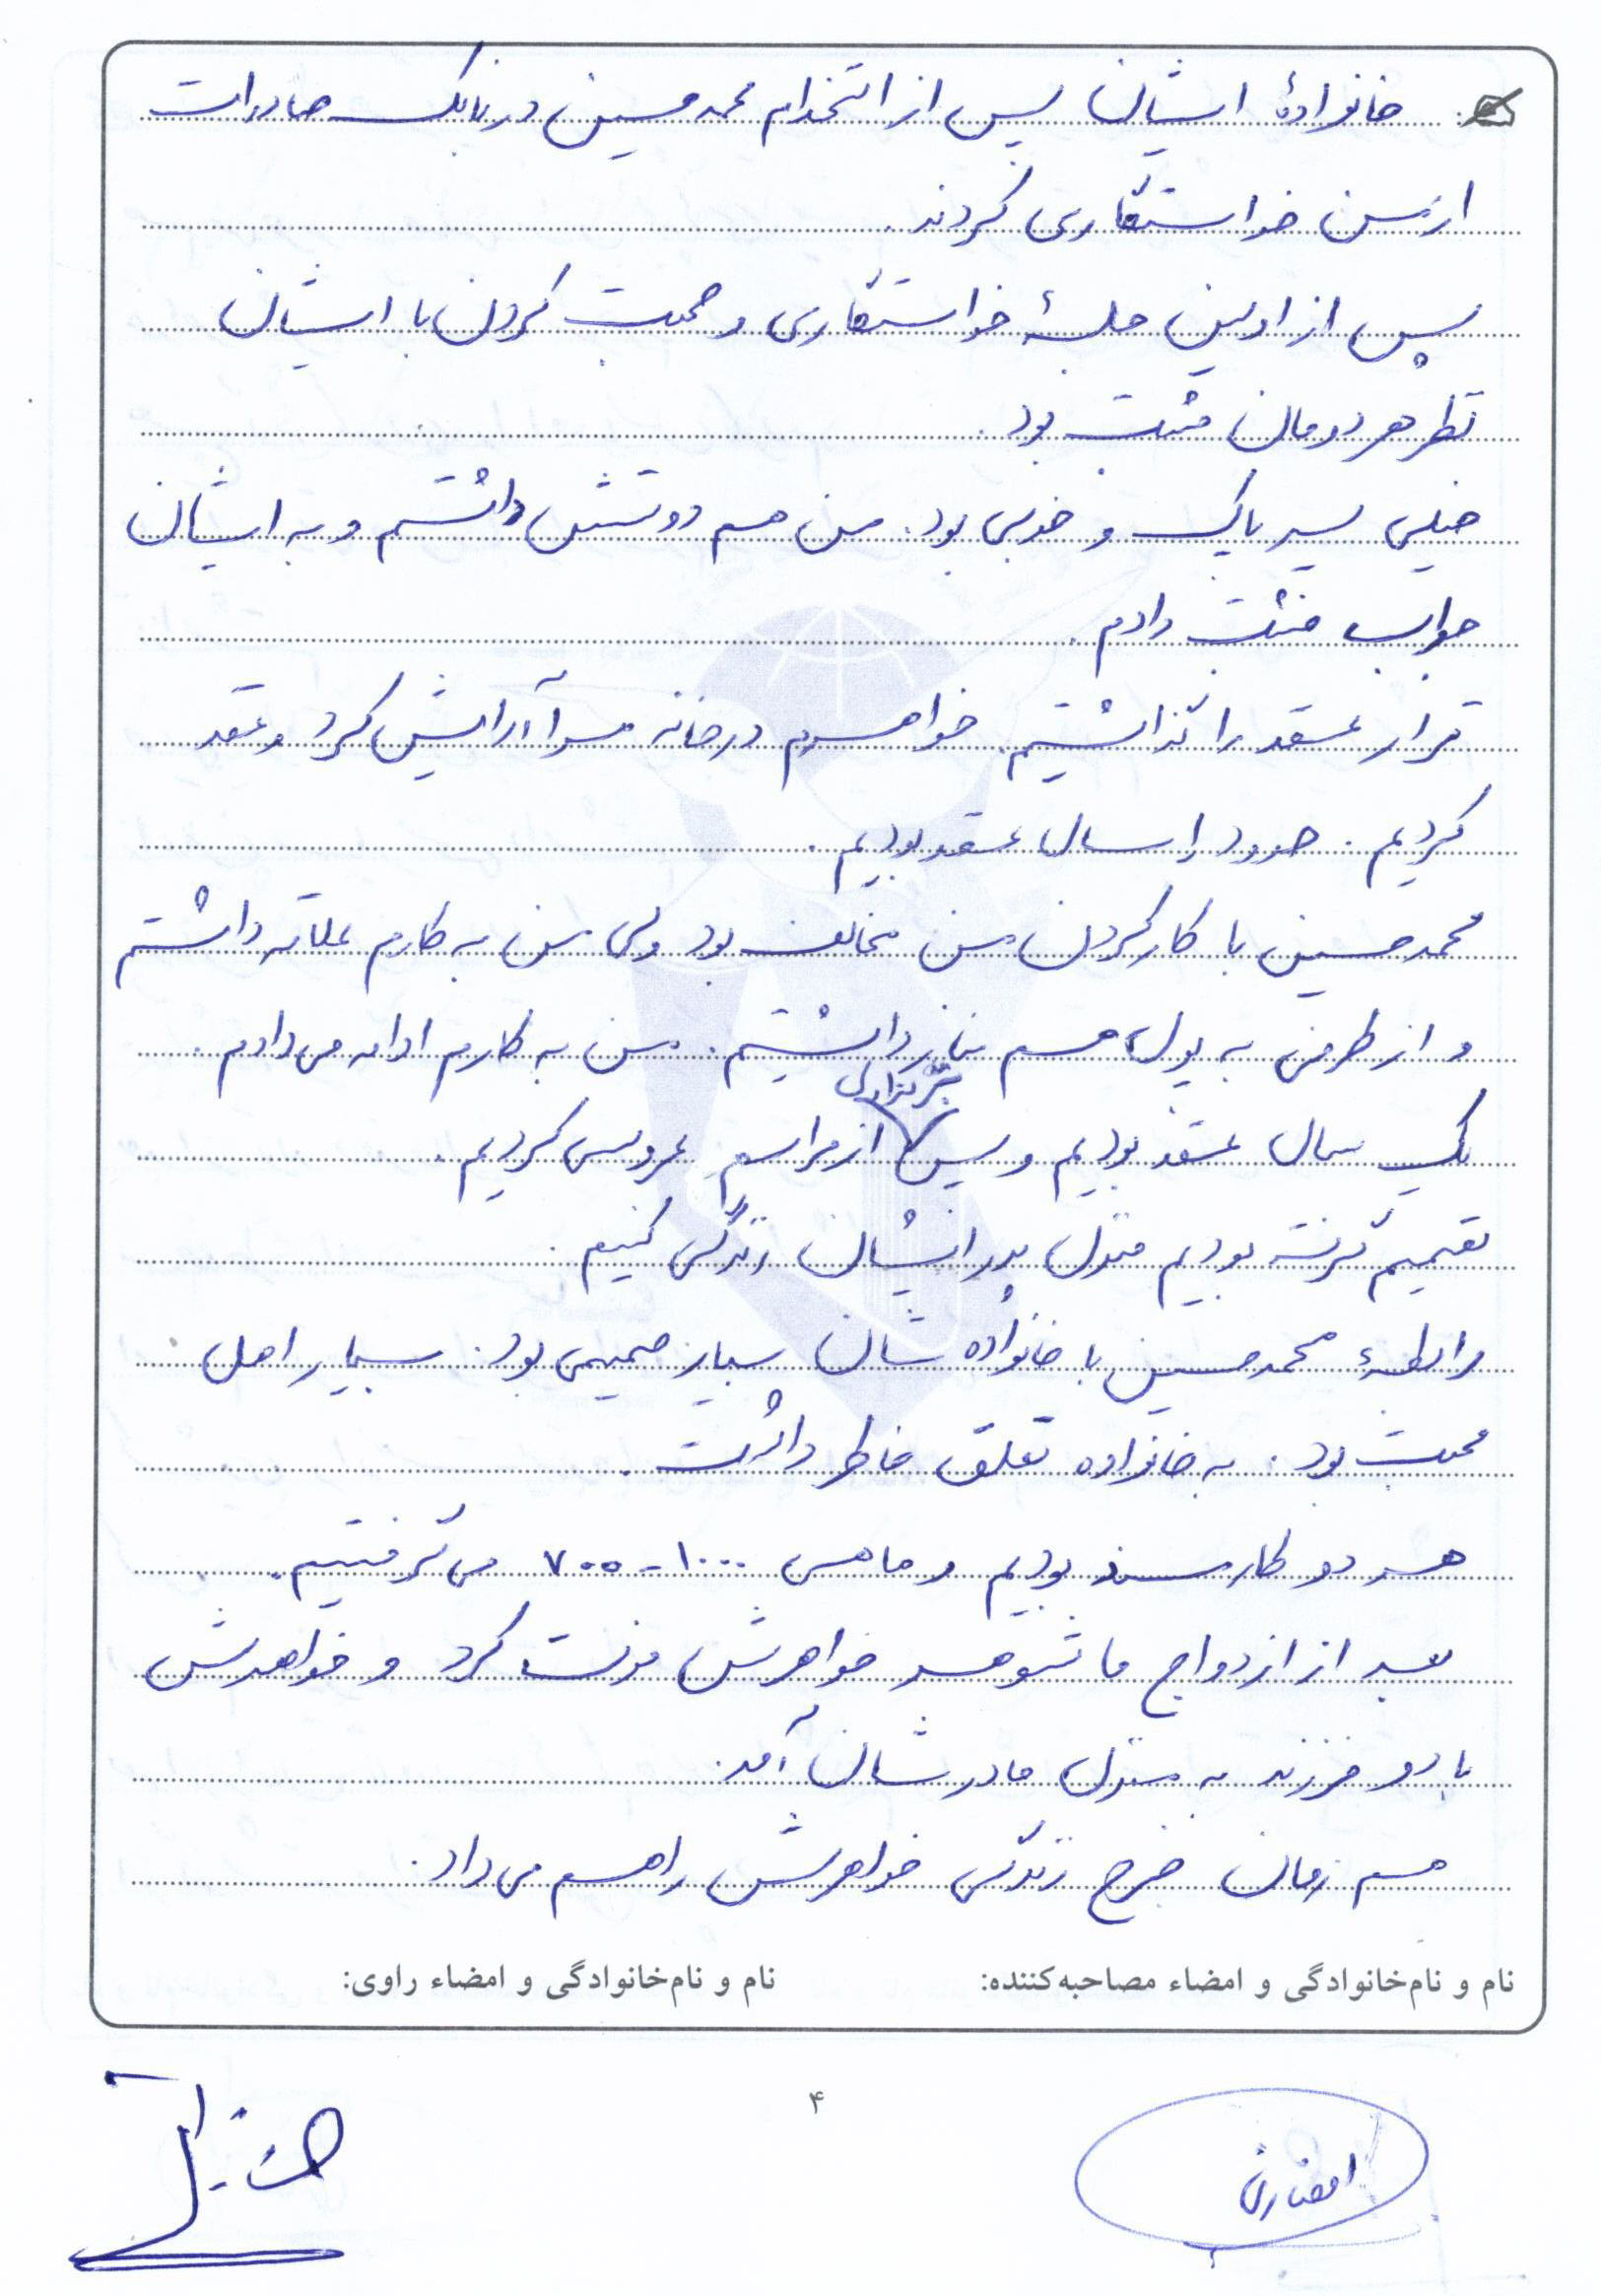 خانوادۀ ایشان پس از استخدام محمدحسین در بانک صادرات
از من خواستگاری کردند.
پس از اولین جلسۀ خواستگاری و صحبت کردن با ایشان
نظر هر دومان مثبت بود.
خیلی پسر پاک و خوبی بود. من هم دوستش داشتم و به ایشان
جواب مثبت دادم.
قرار عقد را گذاشتیم. خواهرم در خانه مرا آرایش کرد و عقد
کردیم. حدود ۱ سال عقد بودیم.
محمدحسین با کار کردن من مخالف بود ولی من به کارم علاقه داشتم
و از طرفی به پول هم نیاز داشتیم. من به کارم ادامه می‌دادم.
یک سال عقد بودیم و پس از برگزاری مراسم عروسی کردیم.
تصمیم گرفته بودیم منزل پدر ایشان زندگی کنیم.
رابطۀ محمدحسین با خانواده شان بسیار صمیمی بود. بسیار اهل
محبت بود. به خانواده تعلق خاطر داشت.
هر دو کارمند بودیم و ماهی ۱۰۰۰-۷۰۰ می‌گرفتیم.
بعد از ازدواج ما شوهر خواهرش فوت کرد و خواهرش
با دو فرزند به منزل مادرشان آمد.
هم زمان خرج زندگی خواهرش را هم می‌داد.
نام و نام‌خانوادگی و امضاء مصاحبه‌کننده: نام و نام‌خانوادگی و امضاء راوی:
۴